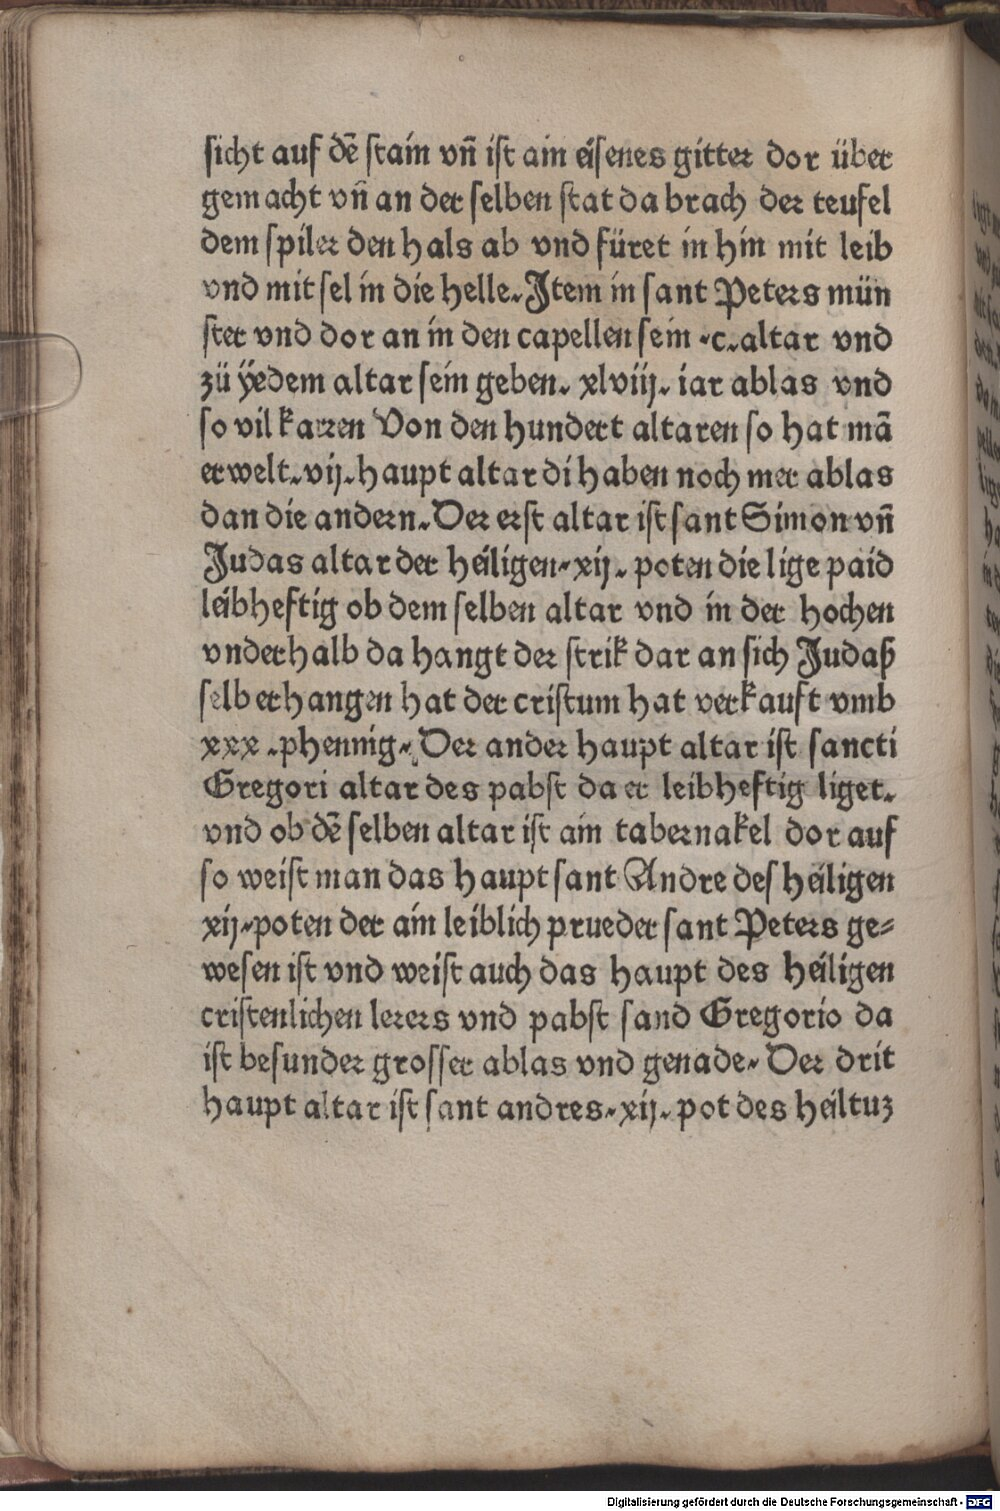 sicht auf dē stain vn̄ ist ain eisenes gitter dor über
gemacht vn̄ an der selben stat da brach der teufel
dem spiler den hals ab vnd füret in hin mit leib
vnd mit sel in die helle. Item in sant Peters mün
ster vnd dor an in den capellen sein .c. altar vnd
zü ÿedem altar sein geben. xlviij. iar ablas vnd
so vil karren Von den hundert altaren so hat mā
erwelt. vij. haupt altar di haben noch mer ablas
dan die andern. Der erst altar ist sant Simon vn̄
Judas altar der heiligen. xij. poten die lige paid
leibheftig ob dem selben altar vnd in der hochen
vnderhalb da hangt der strik dar an sich Judaß
selb erhangen hat der cristum hat verkauft vmb
xxx .phennig. Der ander haupt altar ist sancti
Gregori altar des pabst da er leibheftig liget.
vnd ob dē selben altar ist ain tabernakel dor auf
so weist man das haupt sant Andre des heiligen
xij. poten der ain leiblich prueder sant Peters ge=
wesen ist vnd weist auch das haupt des heiligen
cristenlichen lerers vnd pabst sand Gregorio da
ist besunder grosser ablas vnd genade. Der drit
haupt altar ist sant andres. xij. pot des heiltuz
Digitalisierung gefördert durch die Deutsche Forschungsgemeinschaft - DFG